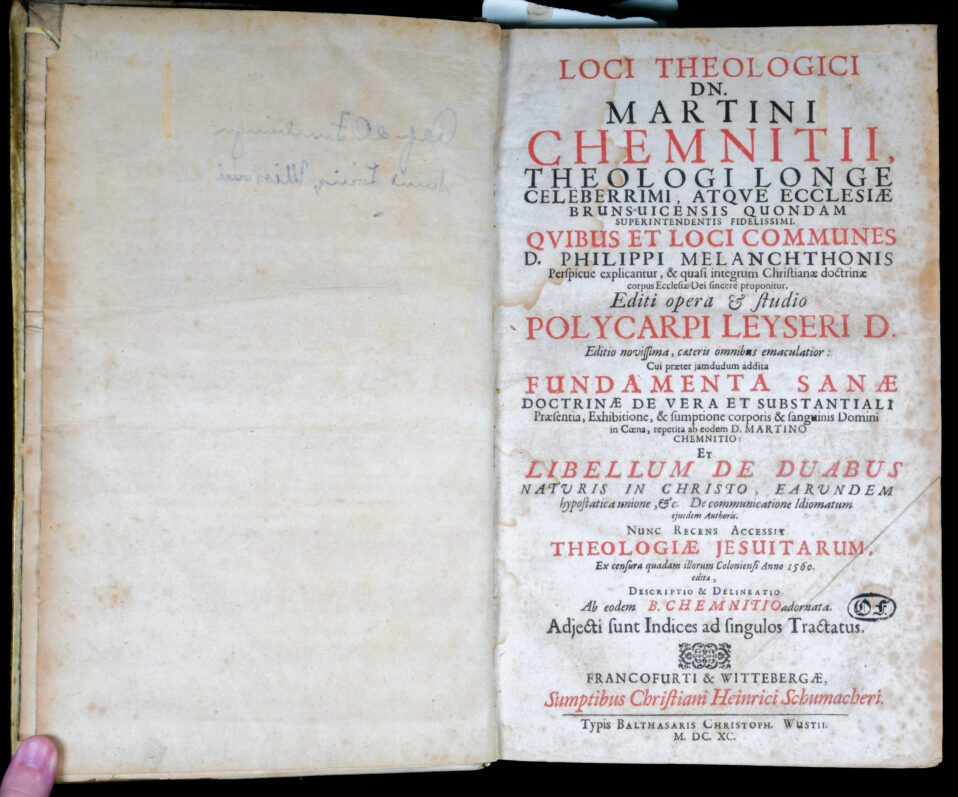 LOCI THEOLOGICI
DN.
MARTINI
CHEMNITII,
THEOLOGI LONGE
CELEBERRIMI, ATQVE ECCLESIÆ
BRUNSUICENSIS QUONDAM
SUPERINTENDENTIS FIDELISSIMI.
QVIBUS ET LOCI COMMUNES
D. PHILIPPI MELANCHTHONIS
Perspicue explicantur, & quasi integrum Christianæ doctrinæ
corpus Ecclesiæ Dei sincerè proponitur,
Editi opera & studio
POLYCARPI LEYSERI D.
Editio novissima, cæteris omnibus emaculatior:
Cui præter jamdudum addita
FUNDAMENTA SANÆ
DOCTRINÆ DE VERA ET SUBSTANTIALI
Præsentia, Exhibitione, & sumptione corporis & sanguinis Domini
in Cœna, repetita ab eodem D. MARTINO
CHEMNITIO:
ET
LIBELLUM DE DUABUS
NATURIS IN CHRISTO, EARUNDEM
hypostatica unione, &c. De communicatione Idiomatum
ejusdem Authoris.
NUNC RECENS ACCESSIT
THEOLOGIÆ JESUITARUM,
Ex censura quadam illorum Coloniensi Anno 1560.
edita,
DESCRIPTIO & DELINEATIO
Ab eodem B. CHEMNITIO adornata.
O.F.
Adjecti sunt Indices ad singulos Tractatus.
FRANCOFURTI & WITTEBERGÆ,
Sumptibus Christiani Heinrici Schumacheri.
Typis BALTHASARIS CHRISTOPH. WUSTII.
M. DC. XC.